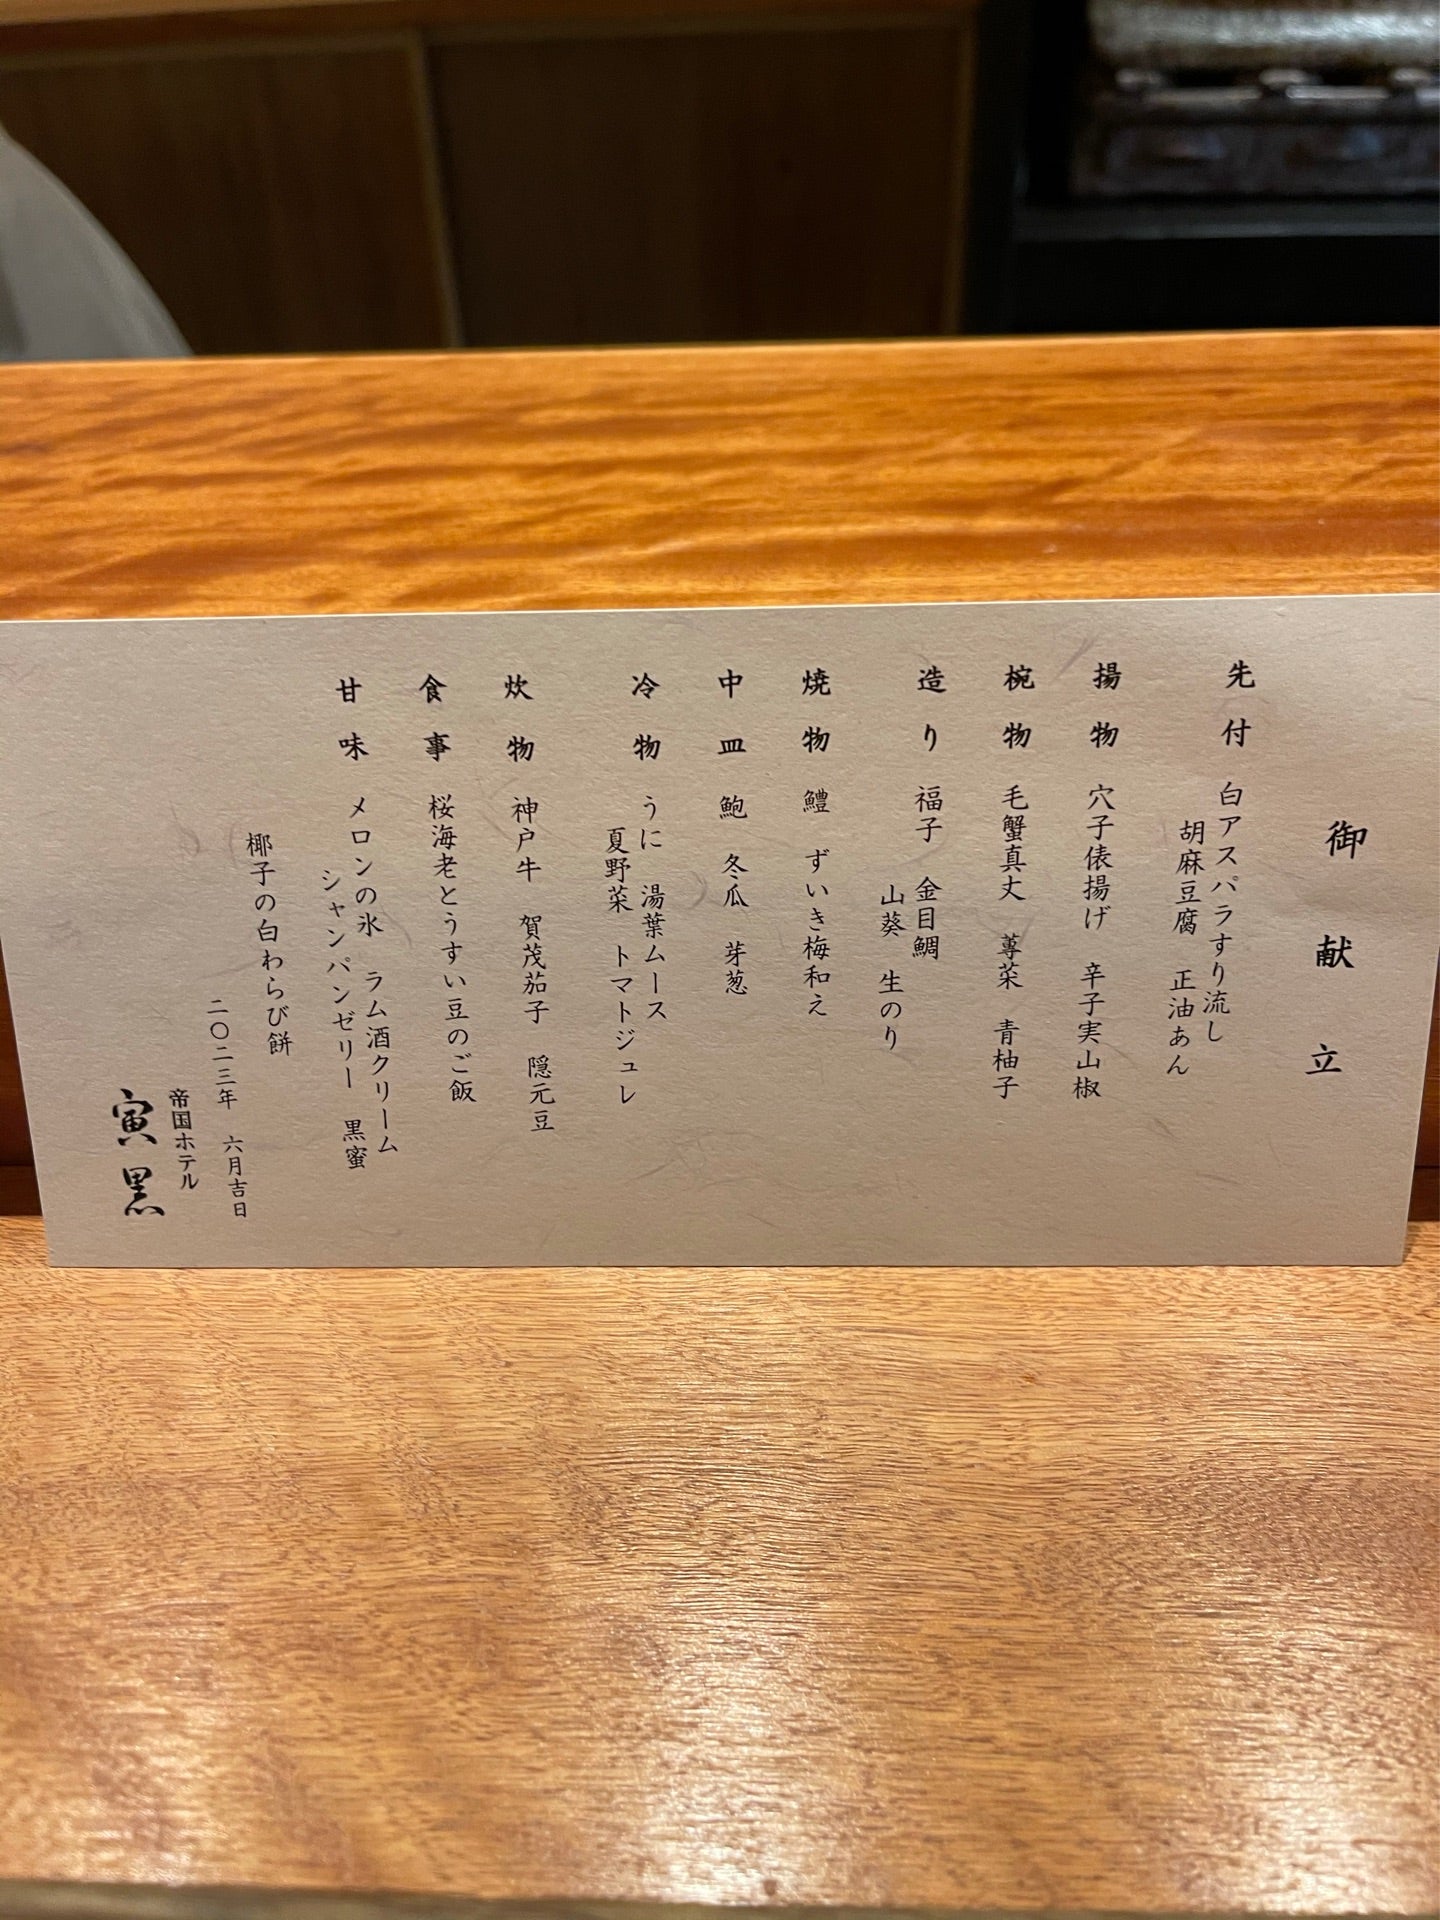 御献立
先付 白アスパラすり流し
胡麻豆腐 正油あん
揚物 穴子俵揚げ 辛子実山椒
椀物 毛蟹真丈 蓴菜 青柚子
造り 福子 金目鯛
山葵 生のり
焼物 鱧 ずいき梅和え
中皿 鮑 冬瓜 芽葱
冷物 うに 湯葉ムース
夏野菜 トマトジュレ
炊物 神戸牛 賀茂茄子 隠元豆
食事 桜海老とうすい豆のご飯
甘味 メロンの氷 ラム酒クリーム
シャンパンゼリー 黒蜜
椰子の白わらび餅
二〇二三年 六月吉日
帝国ホテル
寅黒